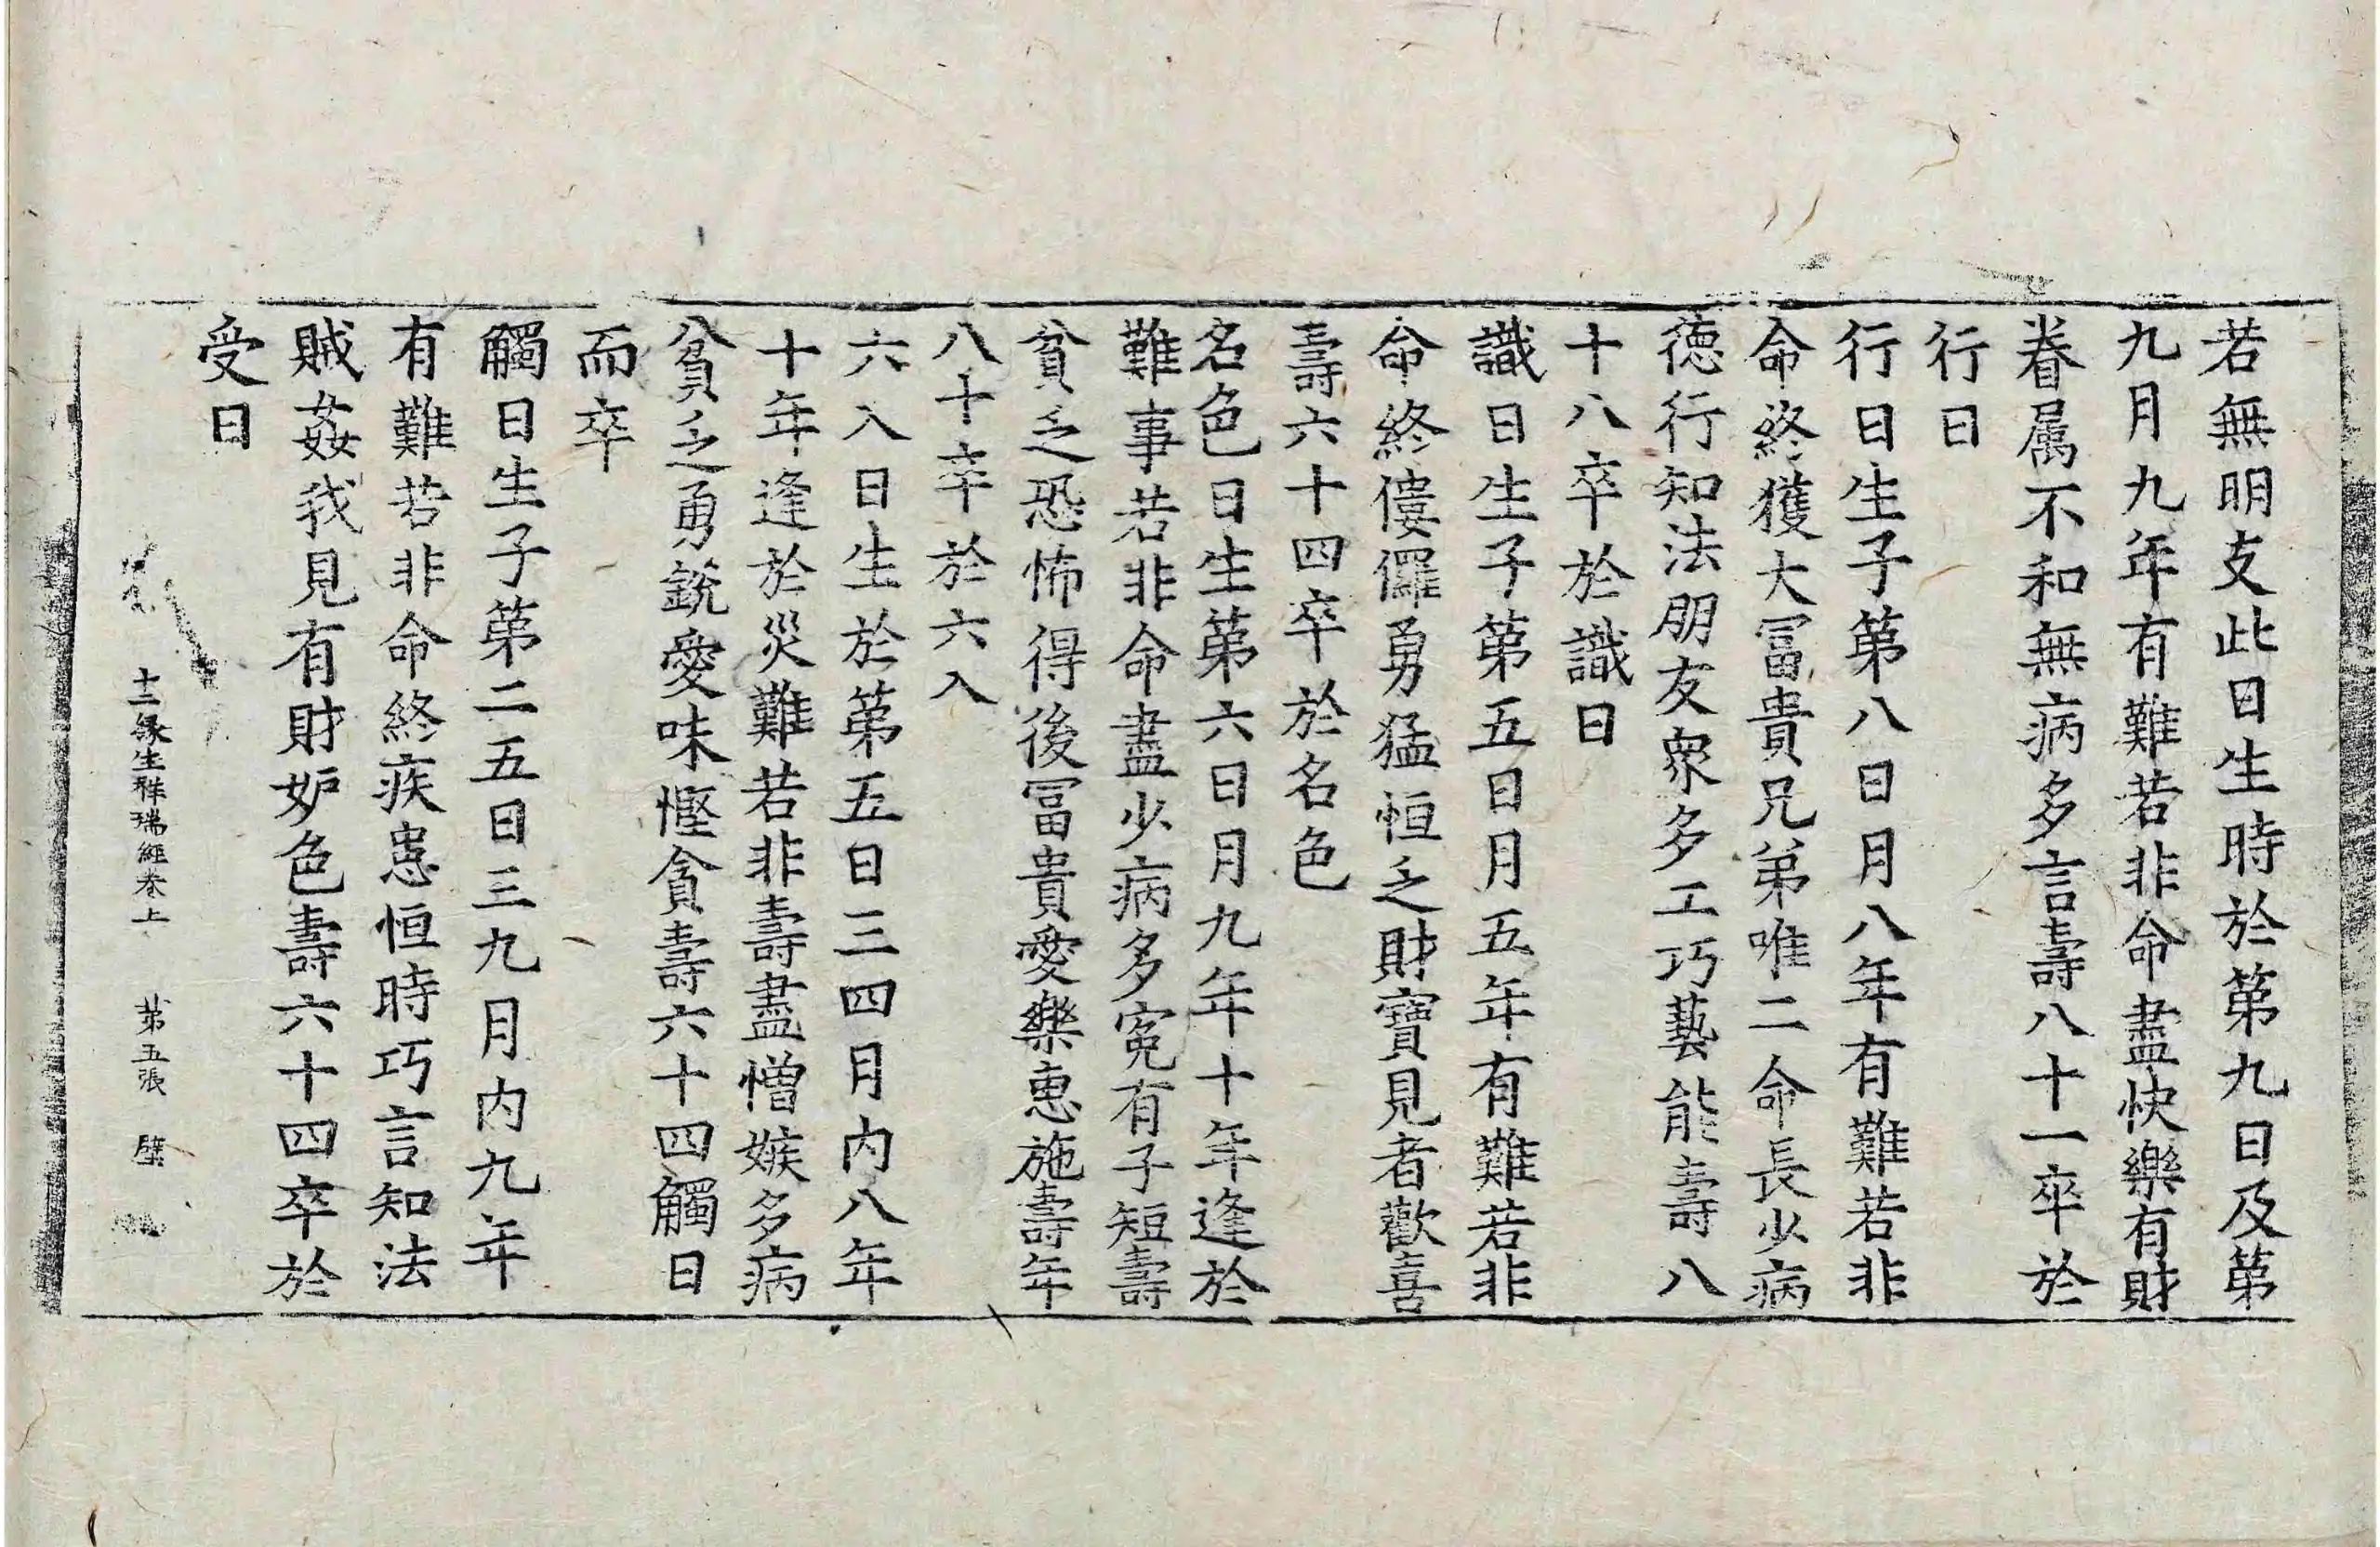 若無明支此日生時於第九日及第
九月九年有難若非命盡快樂有財
眷属不和無病多言壽八十一卒於
行日
行日生子第八日月八年有難若非
命終獲大冨貴兄弟唯二命長少病
德行知法朋友衆多工巧藝能壽八
十八卒於識日
識日生子第五日月五年有難若非
命終僂儸勇猛恒乏財寶見者歡喜
壽六十四卒於名色
名色日生第六日月九年十年逢於
難事若非命盡少病多寃有子短壽
貧乏恐怖得後冨貴愛樂惠施壽年
八十卒於六入
六入日生於第五日三四月内八年
十年逢於災難若非壽盡憎嫉多病
貧乏勇銳愛味慳貪壽六十四觸日
而卒
觸日生子第二五日三九月内九年
有難若非命終疾患恒時巧言知法
賊姦我見有財妒色壽六十四卒於
受日
十二緣生祥瑞經卷上 第五張